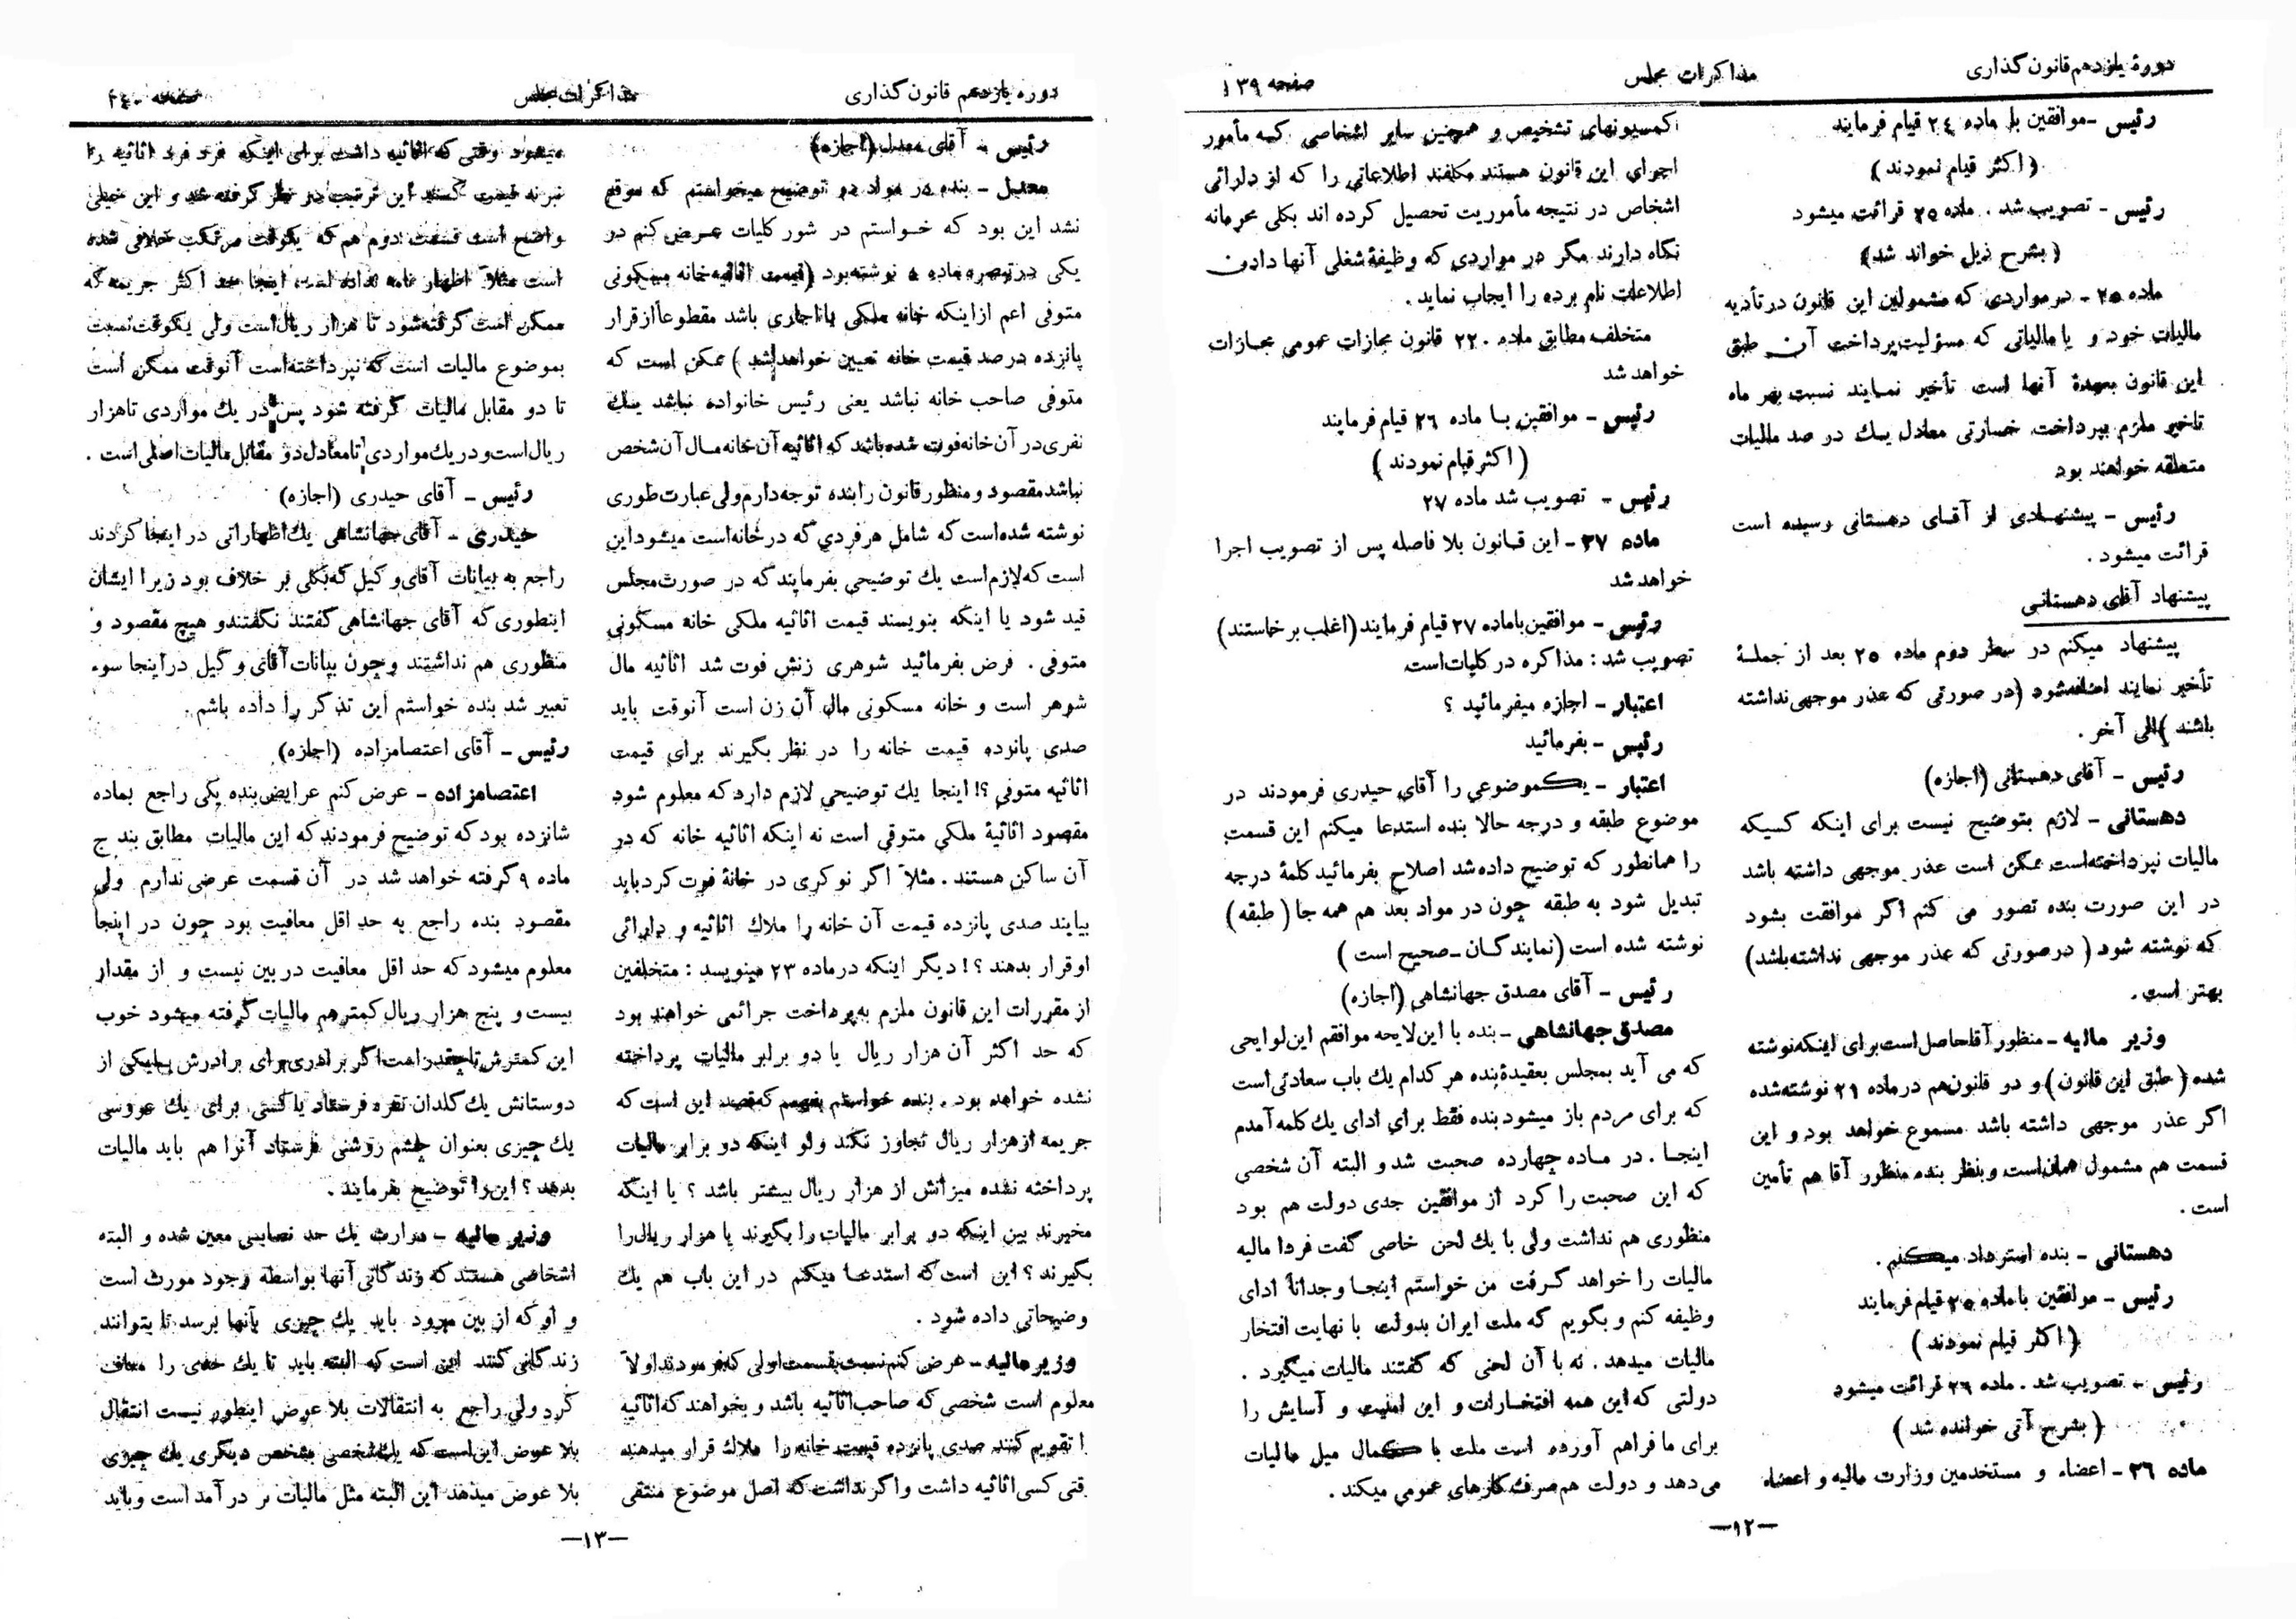 دورهٔ یازدهم قانون گذاری
مذاکرات مجلس
صفحه ۱۳۹
رئیس - موافقین با ماده ۲٤ قیام فرمایند
(اکثر قیام نمودند)
رئیس - تصویب شد . ماده ۲۵ قرائت میشود
(بشرح ذیل خواند شد)
ماده ۲۵ - در مواردی که مشمولین این قانون در تأدیه
مالیات خود و یا مالیاتی که مسؤلیت پرداخت آن طبق
این قانون بعهدهٔ آنها است تأخیر نمایند نسبت بهر ماه
تاخیر ملزم بپرداخت خسارتی معادل یک در صد مالیات
متعلقه خواهند بود
رئیس - پیشنهادی از آقای دهستانی رسیده است
قرائت میشود .
پیشنهاد آقای دهستانی
پیشنهاد میکنم در سطر دوم ماده ۲۵ بعد از جملهٔ
تأخیر نمایند اضافه شود (در صورتی که عذر موجهی نداشته
باشند) الی آخر .
رئیس - آقای دهستانی (اجازه)
دهستانی - لازم بتوضیح نیست برای اینکه کسیکه
مالیات نپرداخته است ممکن است عذر موجهی داشته باشد
در این صورت بنده تصور می کنم اگر موافقت بشود
که نوشته شود (در صورتی که عذر موجهی نداشته باشد)
بهتر است .
وزیر مالیه - منظور آقا حاصل است برای اینکه نوشته
شده (طبق این قانون) و دو قانون هم در ماده ۲۱ نوشته شده
اگر عذر موجهی داشته باشد مسموع خواهد بود و این
قسمت هم مشمول همان است و بنظر بنده منظور آقا هم تأمین
است .
دهستانی - بنده استرداد میکنم .
رئیس - موافقین با ماده ۲۵ قیام فرمایند
(اکثر قیام نمودند)
رئیس - تصویب شد . ماده ۲٦ قرائت میشود
(بشرح آتی خوانده شد)
ماده ۲٦ - اعضاء و مستخدمین وزارت مالیه و اعضاء
کمسیونهای تشخیص و همچنین سایر اشخاصی که مأمور
اجرای این قانون هستند مکلفند اطلاعاتی را که از دارائی
اشخاص در نتیجه مأموریت تحصیل کرده اند بکلی محرمانه
نگاه دارند مگر در مواردی که وظیفهٔ شغلی آنها دادن
اطلاعات نام برده را ایجاب نماید .
متخلف مطابق ماده ۲۲۰ قانون مجازات عمومی مجازات
خواهد شد
رئیس - موافقین با ماده ۲٦ قیام فرمایند
(اکثر قیام نمودند)
رئیس - تصویب شد ماده ۲۷
ماده ۲۷ - این قانون بلا فاصله پس از تصویب اجرا
خواهد شد
رئیس - موافقین با ماده ۲۷ قیام فرمایند (اغلب برخاستند)
تصویب شد : مذاکره در کلیات است
اعتبار - اجازه میفرمائید ؟
رئیس - بفرمائید
اعتبار - یکموضوعی را آقای حیدری فرمودند در
موضوع طبقه و درجه حالا بنده استدعا میکنم این قسمت
را همانطور که توضیح داده شد اصلاح بفرمائید کلمهٔ درجه
تبدیل شود به طبقه چون در مواد بعد هم همه جا (طبقه)
نوشته شده است (نمایندگان - صحیح است)
رئیس - آقای مصدق جهانشاهی (اجازه)
مصدق جهانشاهی - بنده با این لایحه موافقم این لوایحی
که می آید بمجلس بعقیدهٔ بنده هر کدام یک باب سعادتی است
که برای مردم باز میشود بنده فقط برای ادای یک کلمه آمدم
اینجا . در ماده چهارده صحبت شد و البته آن شخصی
که این صحبت را کرد از موافقین جدی دولت هم بود
منظوری هم نداشت ولی با یک لحن خاصی گفت فردا مالیه
مالیات را خواهد گرفت من خواستم اینجا وجداناً ادای
وظیفه کنم و بگویم که ملت ایران بدولت با نهایت افتخار
مالیات میدهد . نه با آن لحنی که گفتند مالیات میگیرد .
دولتی که این همه افتخارات و این امنیت و آسایش را
برای ما فراهم آورده است ملت با کمال میل مالیات
می دهد و دولت هم صرف کارهای عمومی میکند .
—۱۲—
دوره یازدهم قانون گذاری
مذاکرات مجلس
صفحه ۱٤۰
رئیس - آقای معدل (اجازه)
معدل - بنده در مواد دو توضیح میخواستم که موقع
نشد این بود که خواستم در شور کلیات عرض کنم دو
یکی در تبصره ماده ۵ نوشته بود (قیمت اثاثیه خانه مسکونی
متوفی اعم از اینکه خانه ملکی یا اجاری باشد مقطوعاً از قرار
پانزده درصد قیمت خانه تعیین خواهد شد) ممکن است که
متوفی صاحب خانه نباشد یعنی رئیس خانواده نباشد یک
نفری در آن خانه فوت شده باشد که اثاثیه آن خانه مال آن شخص
نباشد مقصود و منظور قانون را بنده توجه دارم ولی عبارت طوری
نوشته شده است که شامل هر فردی که در خانه است میشود این
است که لازم است یک توضیحی بفرمایند که در صورت مجلس
قید شود یا اینکه بنویسند قیمت اثاثیه ملکی خانه مسکونی
متوفی . فرض بفرمائید شوهری زنش فوت شد اثاثیه مال
شوهر است و خانه مسکونی مال آن زن است آنوقت باید
صدی پانزده قیمت خانه را در نظر بگیرند برای قیمت
اثاثیه متوفی ؟! اینجا یک توضیحی لازم دارد که معلوم شود
مقصود اثاثیهٔ ملکی متوفی است نه اینکه اثاثیه خانه که در
آن ساکن هستند . مثلاً اگر نوکری در خانهٔ فوت کرد باید
بیایند صدی پانزده قیمت آن خانه را ملاک اثاثیه و دارائی
او قرار بدهند ؟! دیگر اینکه در ماده ۲۳ مینویسد : متخلفین
از مقررات این قانون ملزم به پرداخت جرائمی خواهند بود
که حد اکثر آن هزار ریال یا دو برابر مالیات پرداخته
نشده خواهد بود . بنده خواستم بفهمم که قصد این است که
جریمه از هزار ریال تجاوز نکند ولو اینکه دو برابر مالیات
پرداخته نشده میزانش از هزار ریال بیشتر باشد ؟ یا اینکه
مخیرند بین اینکه دو برابر مالیات را بگیرند یا هزار ریال را
بگیرند ؟ این است که استدعا میکنم در این باب هم یک
وضیحاتی داده شود .
وزیر مالیه - عرض کنم نسبت بقسمت اولی که فرمودند اولا
معلوم است شخصی که صاحب اثاثیه باشد و بخواهند که اثاثیه
ا تقویم کنند صدی پانزده قیمت خانه را ملاک قرار میدهند
قتی کسی اثاثیه داشت و اگر نداشت که اصل موضوع منتفی
میشود وقتی که اثاثیه داشت برای اینکه فرد فرد اثاثیه را
نبرند قیمت کنند این ترتیب در نظر گرفته شد و این خیلی
واضح است قسمت دوم هم که یکوقت مرتکب خلافی شده
است مثلا اظهار نامه نداده است اینجا حد اکثر جریمه که
ممکن است گرفته شود تا هزار ریال است ولی یکوقت نسبت
بموضوع مالیات است که نپرداخته است آنوقت ممکن است
تا دو مقابل مالیات گرفته شود پس در یک مواردی تا هزار
ریال است و در یک مواردی تا معادل دو مقابل مالیات اصلی است .
رئیس - آقای حیدری (اجازه)
حیدری - آقای جهانشاهی یک اظهاراتی در اینجا کردند
راجع به بیانات آقای وکیل که بکلی بر خلاف بود زیرا ایشان
اینطوری که آقای جهانشاهی گفتند نگفتند و هیچ مقصود و
منظوری هم نداشتند و چون بیانات آقای وکیل در اینجا سوء
تعبیر شد بنده خواستم این تذکر را داده باشم .
رئیس - آقای اعتصامزاده (اجازه)
اعتصامزاده - عرض کنم عرایض بنده یکی راجع بماده
شانزده بود که توضیح فرمودند که این مالیات مطابق بند ج
ماده ۹ گرفته خواهد شد در آن قسمت عرضی ندارم ولی
مقصود بنده راجع به حد اقل معافیت بود چون در اینجا
معلوم میشود که حد اقل معافیت در بین نیست و از مقدار
بیست و پنج هزار ریال کمتر هم مالیات گرفته میشود خوب
این کمترش تا چقدر است اگر برادری برای برادرش یا یکی از
دوستانش یک گلدان نقره فرستاد یا کسی برای یک عروسی
یک چیزی بعنوان چشم روشنی فرستاد آنرا هم باید مالیات
بدهد ؟ این را توضیح بفرمایند .
وزیر مالیه - مواریث یک حد نصابی معین شده و البته
اشخاصی هستند که زندگانی آنها بواسطه وجود مورث است
و او که از بین میرود باید یک چیزی بآنها برسد تا بتوانند
زندگانی کنند این است که البته باید تا یک حدی را معاف
کرد ولی راجع به انتقالات بلا عوض اینطور نیست انتقال
بلا عوض این است که یک شخصی بشخص دیگری یک چیزی
بلا عوض میدهد این البته مثل مالیات بر در آمد است و باید
—۱۳—